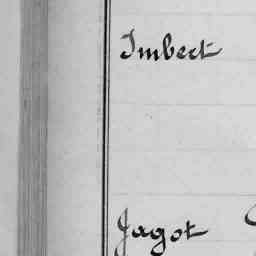 Imbert
Jagot